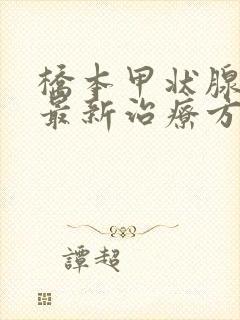 橋本甲状腺
最新治療方
譚超